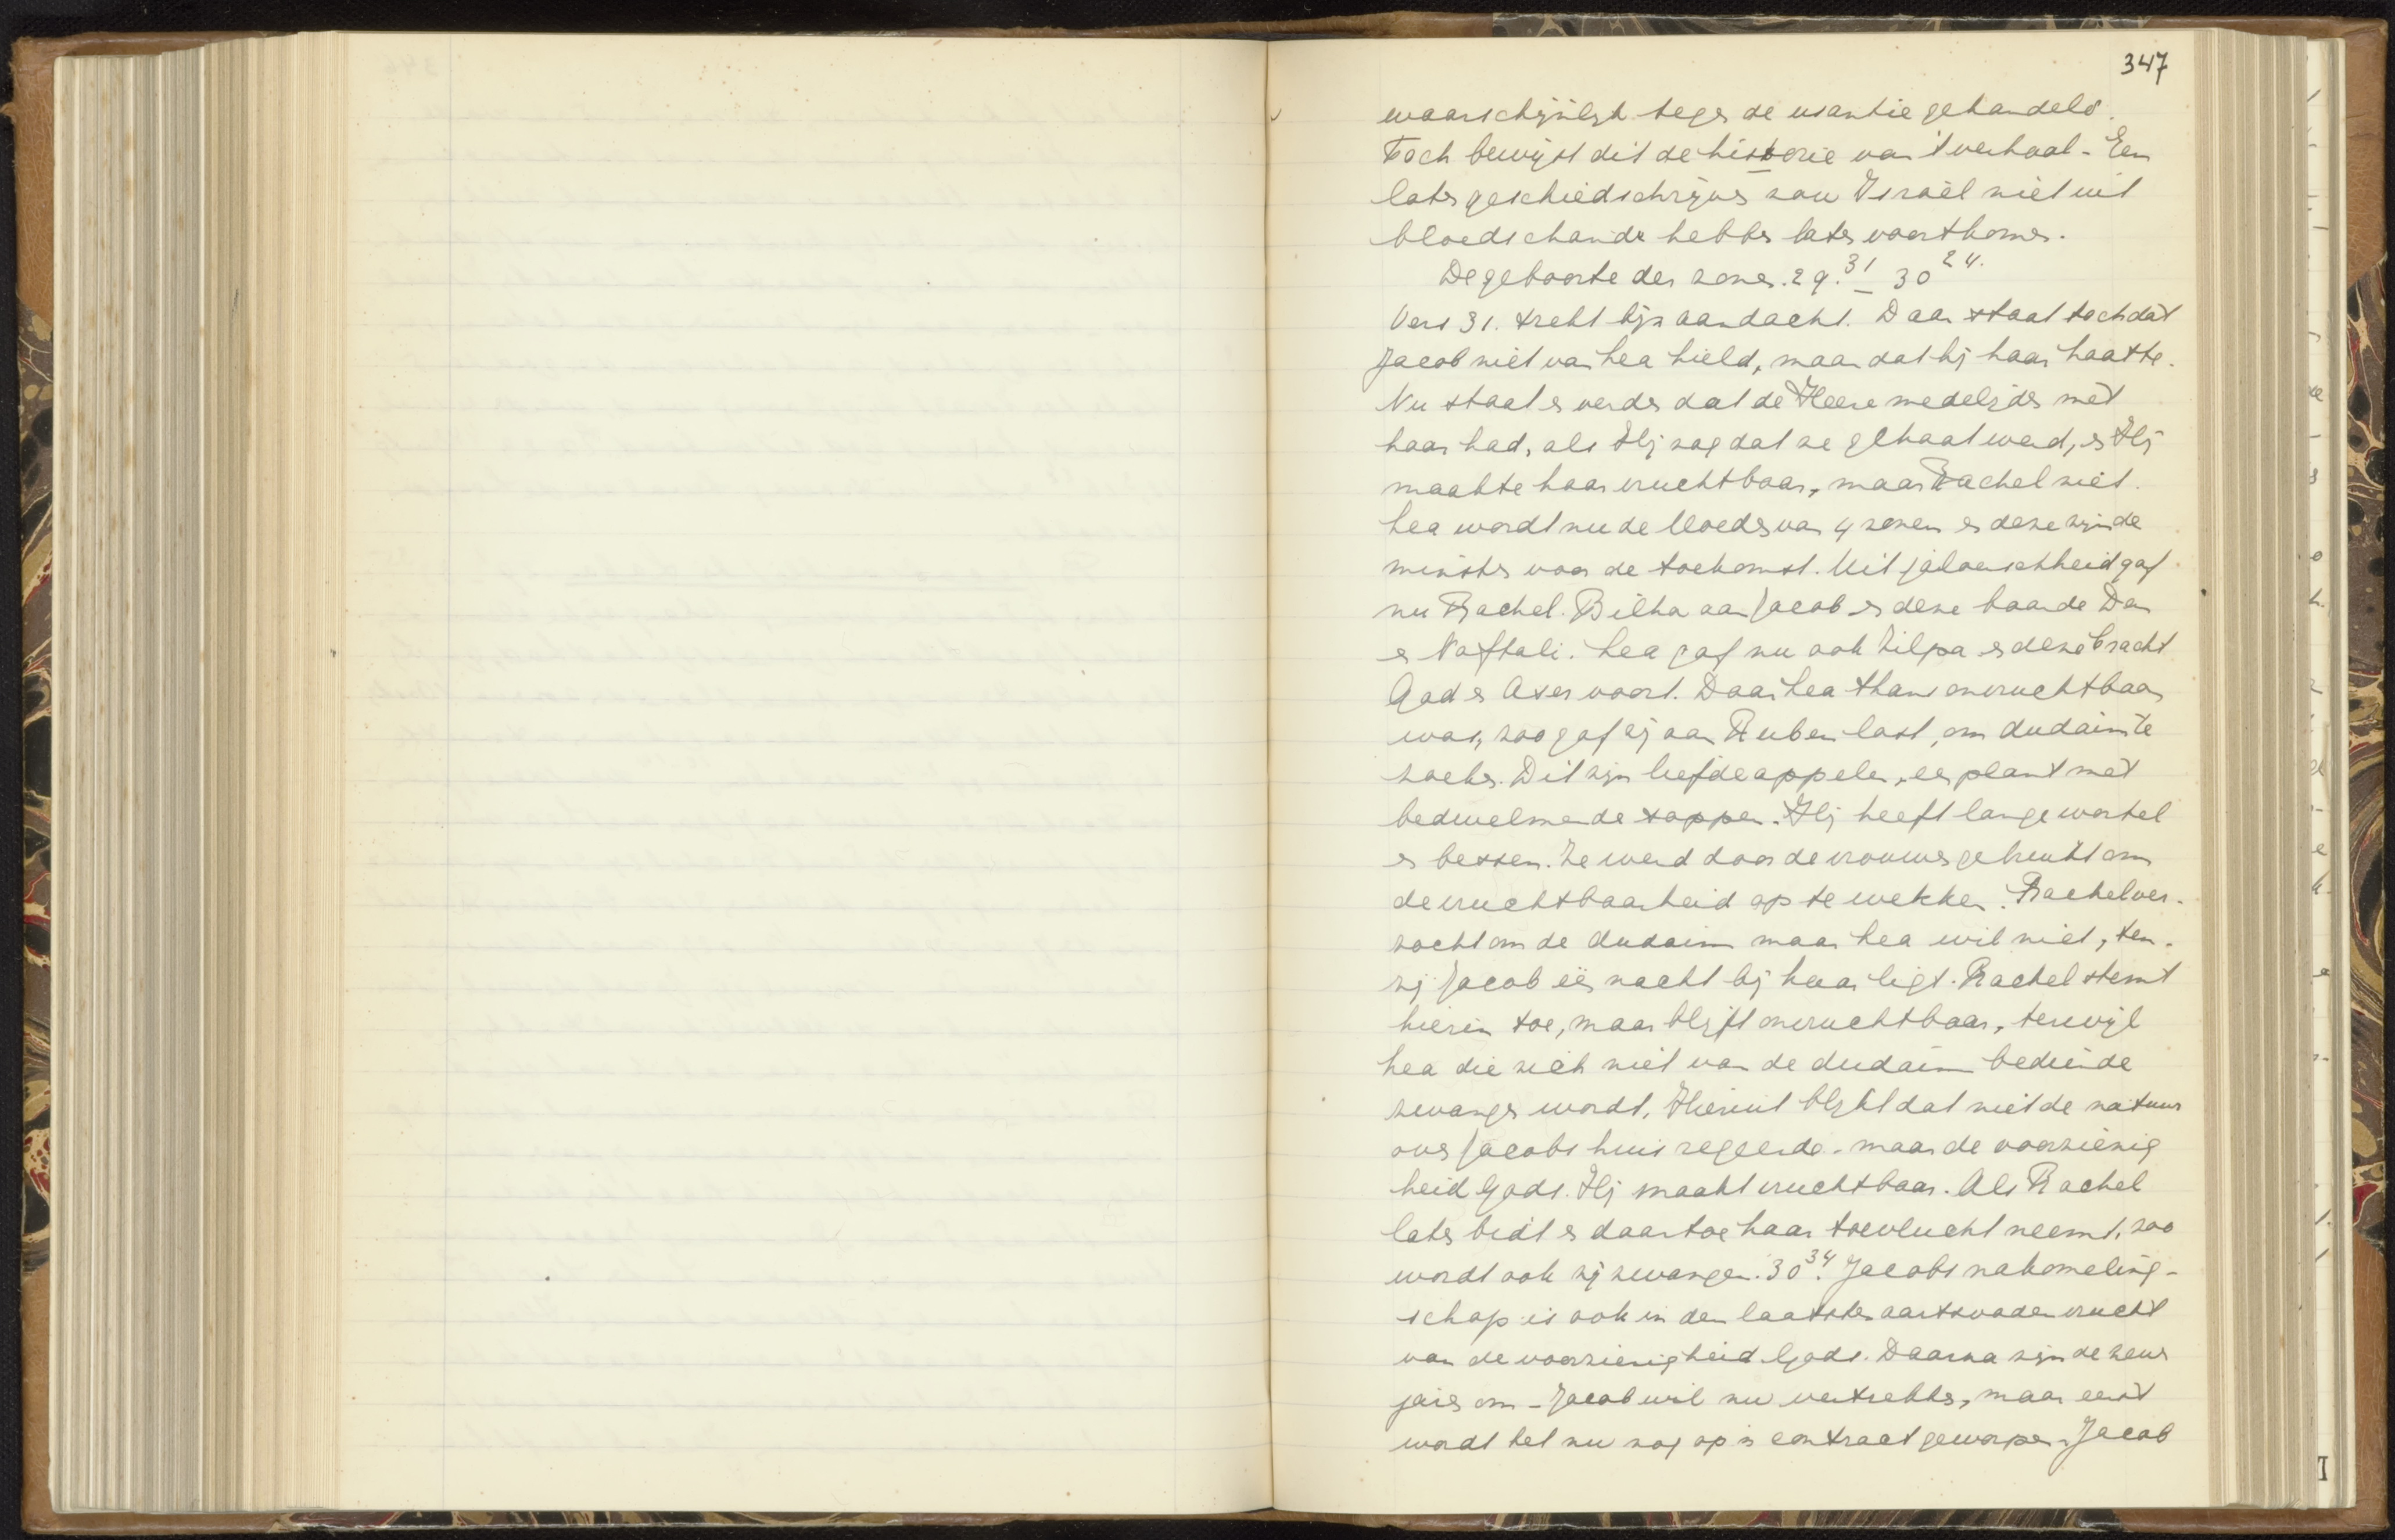 347
waarschijnlijk tegen de usantie gehandeld.
Toch bewijst dit de historie van 't verhaal - Een
later geschiedschrijver zou Israël niet uit
bloedschande hebben laten voortkomen.
De geboorte der zonen. 29.31 - 30 24.
Vers 31. trekt bijz aandacht. Daar staat toch dat
Jacob niet van Lea hield, maar dat hij haar haatte.
Nu staat er verder dat de Heere medelijden met
haar had, als Hij zag dat ze gehaat werd, en Hij
maakte haar vruchtbaar, maar Rachel niet.
Lea wordt nu de Moeder van 4 zonen en deze zijn de
minsten voor de toekomst. Uit jaloerschheid gaf
nu Rachel. Bilha aan Jacob en deze baarde Dan
en Naftali. Lea gaf nu ook Zilpa en deze bracht
Gad en Aser voort. Daar Lea thans onvruchtbaar
was, zoo gaf zij aan Ruben last, om dudaim te
zoeken. Dit zijn liefdeappelen, een plant met
bedwelmende sappen. Hij heeft lange wortel
en bessen. Ze werd door de vrouwen gebruikt om
de vruchtbaarheid op te wekken. Rachel ver-
zocht om de dudaim maar Lea wil niet, ten-
zij Jacob één nacht bij haar ligt. Rachel stemt
hierin toe, maar blijft onvruchtbaar, terwijl
Lea die zich niet van de dudaim bediende
zwanger wordt. Hieruit blijkt dat niet de natuur
over Jacobs huis regeerde - maar de voorzienig
heid Gods. Hij maakt vruchtbaar. Als Rachel
later bidt en daartoe haar toevlucht neemt, zoo
wordt ook zij zwanger. 30 34. Jacobs nakomeling-
schap is ook in den laatsten aartsvader vrucht
van de voorzienigheid Gods. Daarna zijn de zeven
jaren om - Jacob wil nu vertrekken, maar eerst
wordt het nu nog op 'n contract geworpen. Jacob